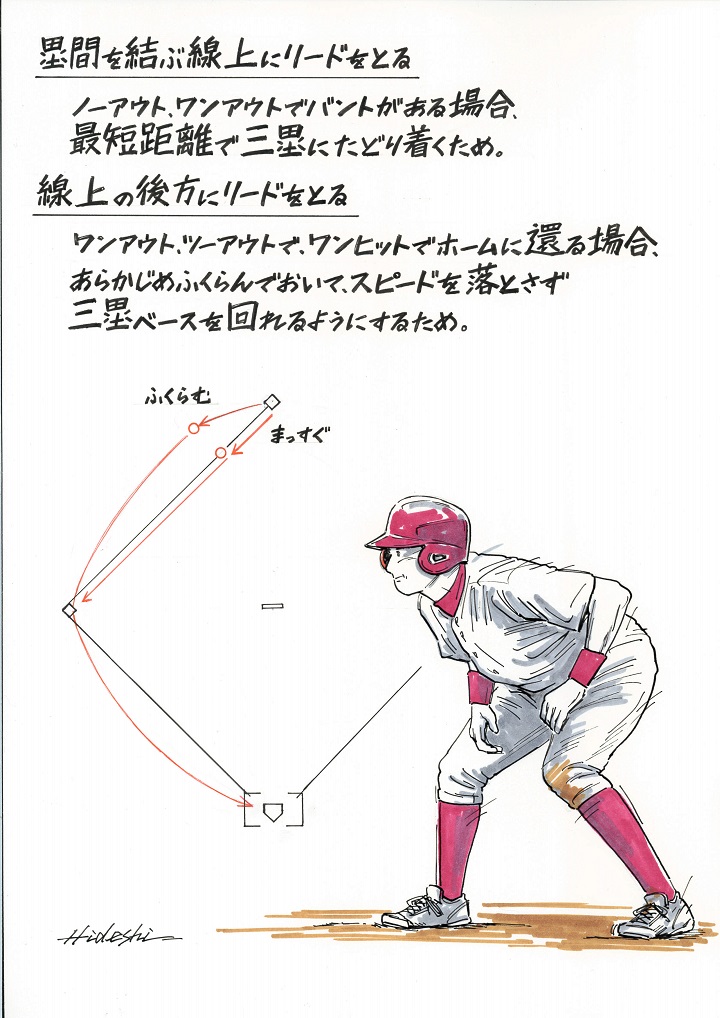 塁間を結ぶ線上にリードをとる
ノーアウト、ワンアウトでバントがある場合、
最短距離で三塁にたどり着くため。
線上の後方にリードをとる
ワンアウト、ツーアウトで、ワンヒットでホームに還る場合、
あらかじめふくらんでおいて、スピードを落とさず
三塁ベースを回れるようにするため。
ふくらむ
まっすぐ
Hideshi